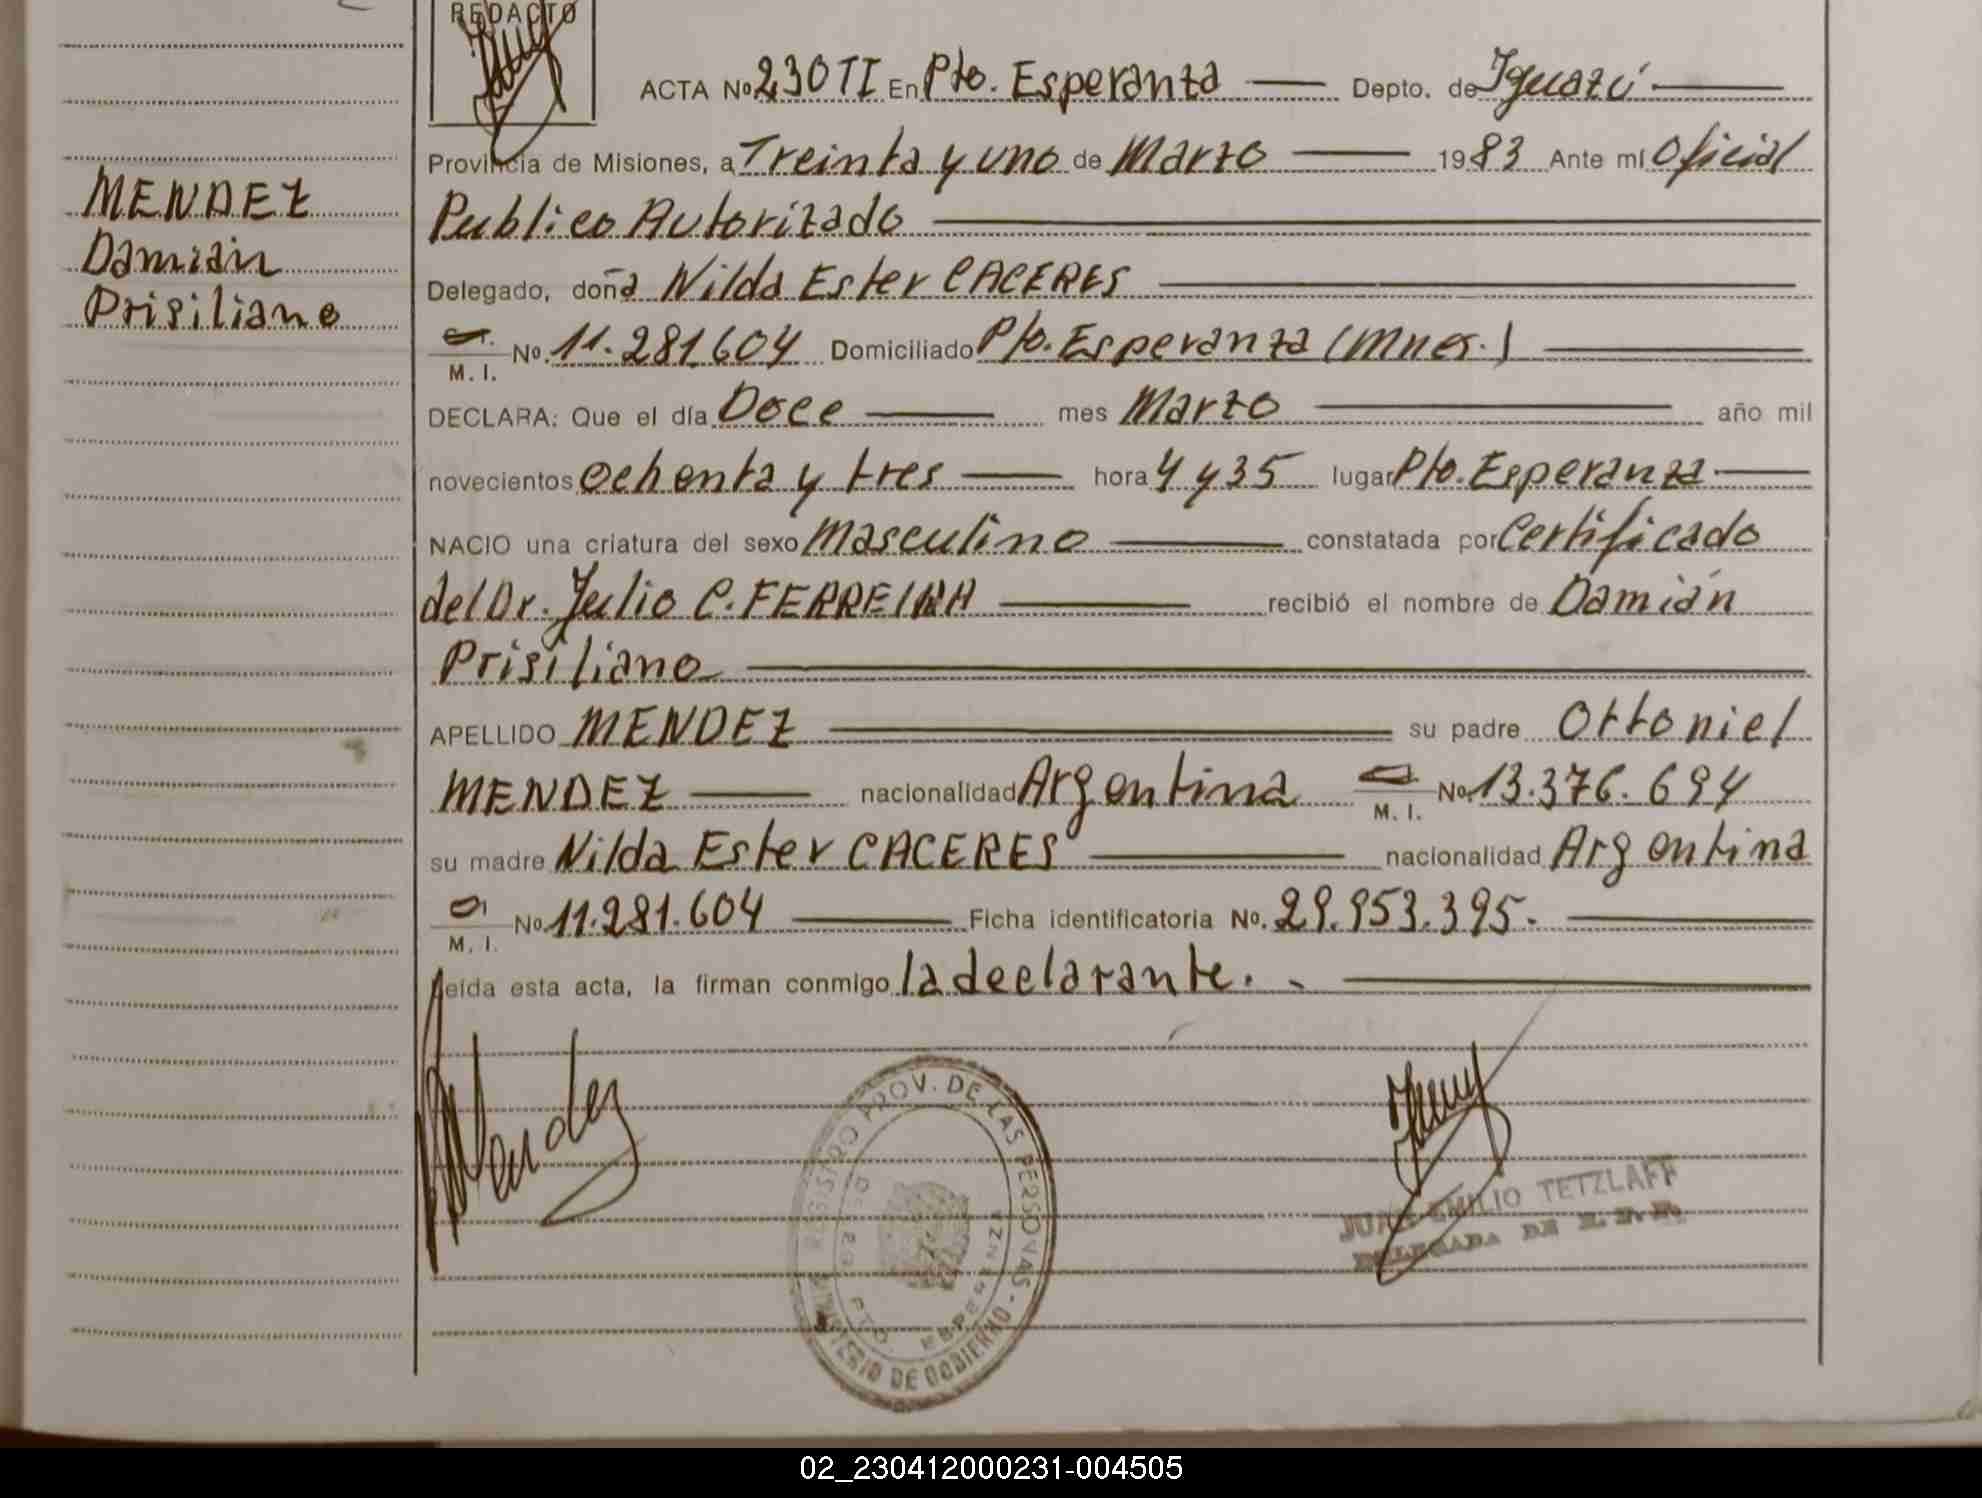 REDACTO
ACTA Nº 230 TI En Pto. Esperanza Depto. de Iguazú
Provincia de Misiones, a Treinta y uno de Marzo 1983 Ante mí Oficial
Publico Autorizado
Delegado, doña Nilda Ester CACERES
M. I. Nº. 11.281.604 Domiciliado Pto. Esperanza (Mnes.)
DECLARA: Que el día Doce mes Marzo año mil
novecientos ochenta y tres hora 4 y 35 lugar Pto. Esperanza
NACIO una criatura del sexo Masculino constatada por Certificado
del Dr. Julio C. FERREIRA recibió el nombre de Damián
Prisiliano
APELLIDO MENDEZ su padre Ottoniel
MENDEZ nacionalidad Argentina M. I. Nº. 13.376.694
su madre Nilda Ester CACERES nacionalidad Argentina
M. I. Nº 11.281.604 Ficha identificatoria Nº. 29.953.395.
Leída esta acta, la firman conmigo la declarante.
MENDEZ
Damián
Prisiliano
Mendez
REGISTRO PROV. DE LAS PERSONAS - MINISTERIO DE GOBIERNO
PTO. ESPERANZA
JUAN EMILIO TETZLAFF
DELEGADA DE R. P. P.
02_230412000231-004505